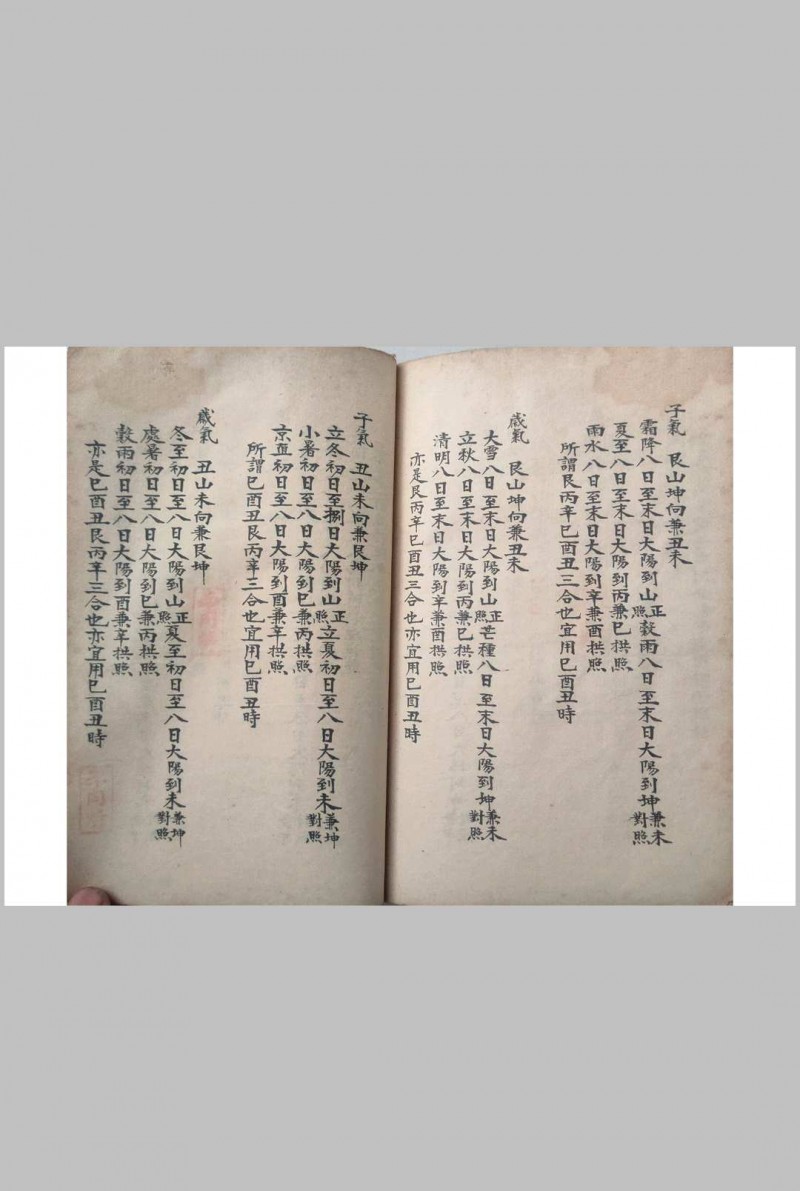 子氣 艮山坤向兼丑未
霜降八日至末日大陽到山正照穀雨八日至末日大陽到坤兼未對照
夏至八日至末日大陽到丙兼巳拱照
雨水八日至末日大陽到辛兼酉拱照
所謂艮丙辛巳酉丑三合也宜用巳酉丑時
歲氣 艮山坤向兼丑未
大雪八日至末日大陽到山正照芒種八日至末日大陽到坤兼未對照
立秋八日至末日大陽到丙兼巳拱照
清明八日至末日大陽到辛兼酉拱照
亦是艮丙辛巳酉丑三合也亦宜用巳酉丑時
子氣 丑山未向兼艮坤
立冬初日至捌日大陽到山正照立夏初日至八日大陽到未兼坤對照
小暑初日至八日大陽到巳兼丙拱照
京蟄初日至八日大陽到酉兼辛拱照
所謂巳酉丑艮丙辛三合也宜用巳酉丑時
歲氣 丑山未向兼艮坤
冬至初日至八日大陽到山正照夏至初日至八日大陽到未兼坤對照
處暑初日至八日大陽到巳兼丙拱照
穀雨初日至八日大陽到酉兼辛拱照
亦是巳酉丑艮丙辛三合也亦宜用巳酉丑時